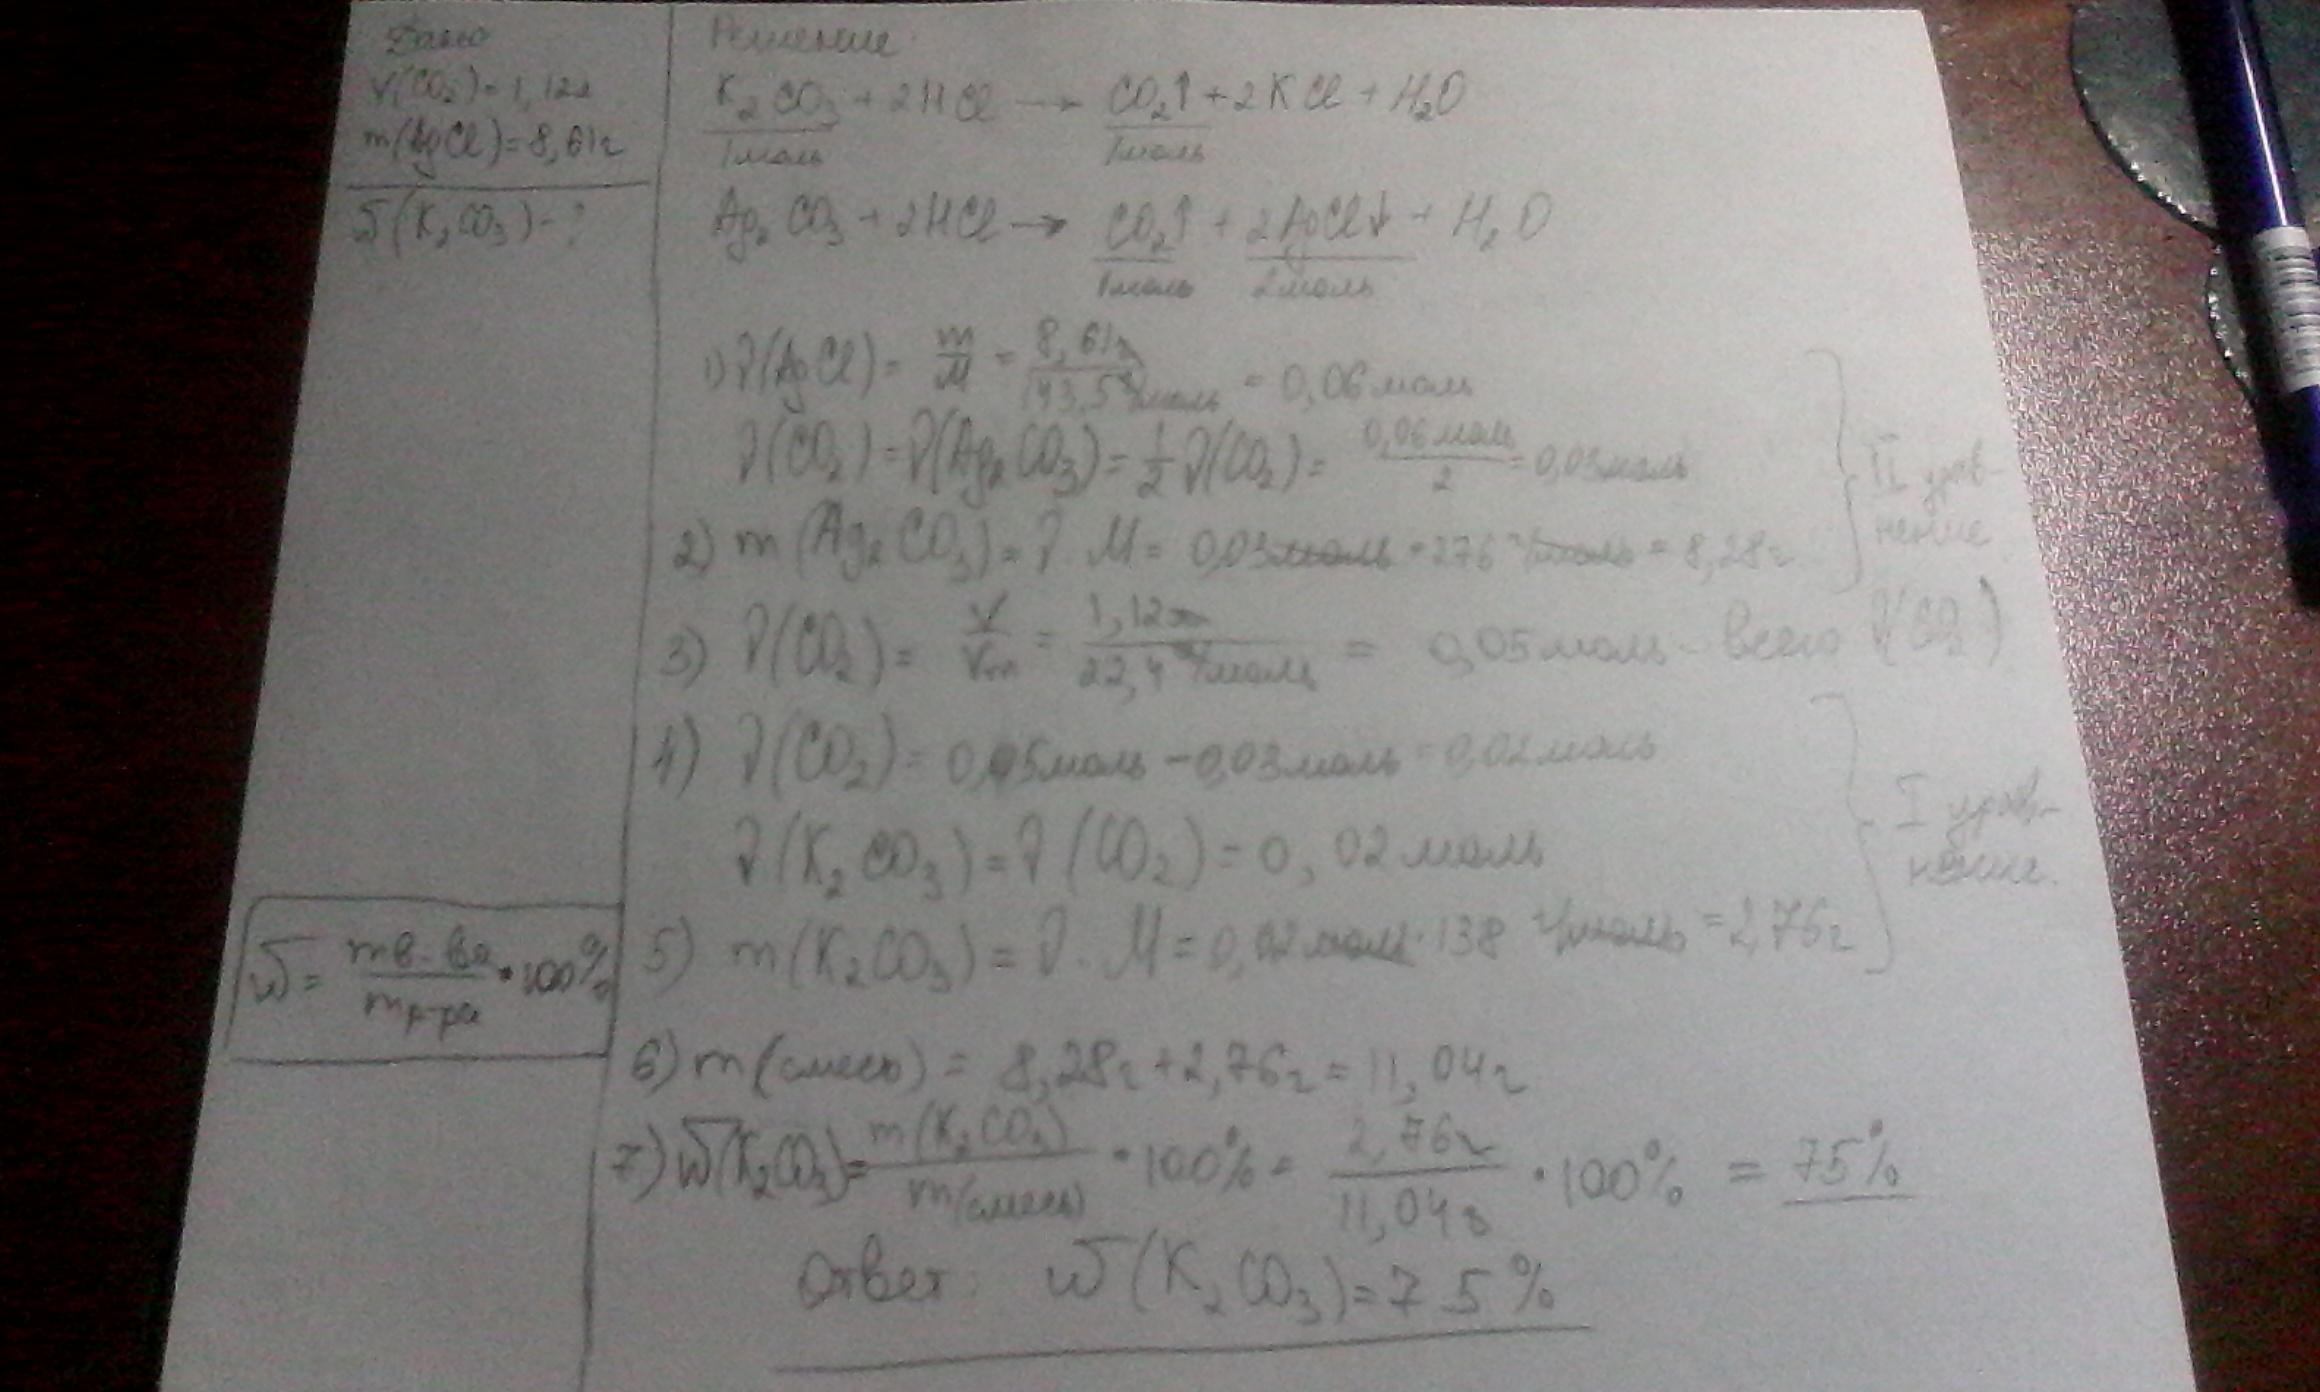 Дано
V(CO₂)=1,12л
m(AgCl)=8,61г
ω(K₂CO₃)-?
Решение:
K₂CO₃ + 2HCl → CO₂↑ + 2KCl + H₂O
1моль 1моль
Ag₂CO₃ + 2HCl → CO₂↑ + 2AgCl↓ + H₂O
1моль 2моль
1) ν(AgCl) = m/M = 8,61г/143,5г/моль = 0,06моль
ν(CO₂) = ν(Ag₂CO₃) = 1/2 ν(CO₂) = 0,06моль/2 = 0,03моль
2) m(Ag₂CO₃) = ν · M = 0,03моль · 276г/моль = 8,28г
II урав-
нение
3) ν(CO₂) = V/Vm = 1,12л/22,4л/моль = 0,05моль - всего ν(CO₂)
4) ν(CO₂) = 0,05моль - 0,03моль = 0,02моль
ν(K₂CO₃) = ν(CO₂) = 0,02моль
5) m(K₂CO₃) = ν · M = 0,02моль · 138г/моль = 2,76г
I урав-
нение.
ω = mв-ва/mр-ра · 100%
6) m(смесь) = 8,28г + 2,76г = 11,04г
7) ω(K₂CO₃) = m(K₂CO₃)/m(смесь) · 100% = 2,76г/11,04г · 100% = 75%
Ответ: ω(K₂CO₃) = 75%